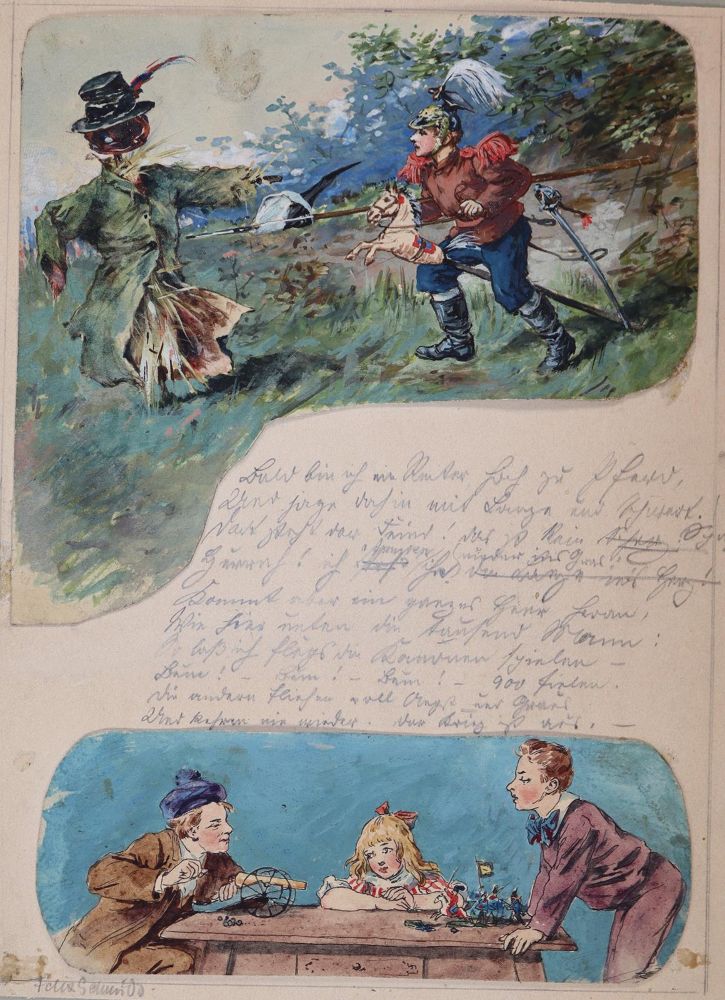 Bald bin ich ein Reiter hoch zu Pferd,
Und jage dahin mit Lanze und Schwert.
Dort steht der Feind! das ist kein
Hurrah! ich nieder ins Gras! ins Herz!
Kommt aber ein ganzes Heer heran,
Wie hier unten die tausend Mann:
So laß ich flugs die Kanonen spielen –
Bum! – Bum! – Bum! – 900 fielen.
Die andern fliehen voll Angst und Graus
Und kehren nie wieder. Der Krieg ist aus. –
Felix Schmidt